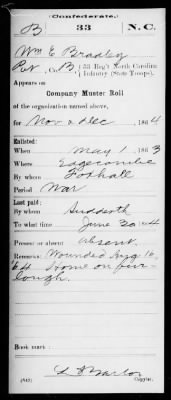 (Confederate.)
B 33 N.C.
Wm E Bradley
Pvt, Co. B, 33 Reg't North Carolina
Infantry (State Troops).
Appears on
Company Muster Roll
of the organization named above,
for Nov & Dec, 1864
Enlisted:
When May 1, 1863
Where Edgecombe
By whom Foxhall
Period War
Last paid:
By whom Sudderth
To what time June 30, 1864
Present or absent Absent
Remarks: Wounded Aug 16,
'64 Home on fur-
lough.
Book mark:
(642)
Copyist.